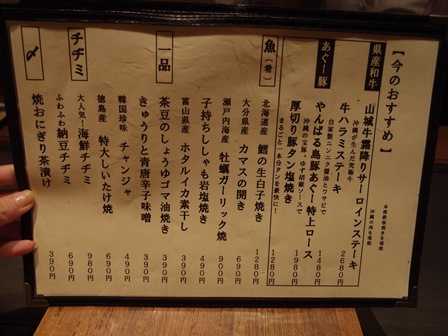 【今のおすすめ】
県産和牛
山城牛霜降りサーロインステーキ 2680円
沖縄が生んだ究極牛
牛ハラミステーキ 1480円
自家製ニンニク醤油とワサビで
あぐー豚
やんばる島豚あぐー特上ロース 1980円
沖縄の宝豚。ゆず胡椒ソースで
厚切り豚タン塩焼き 1280円
まるごと一本分タンを豪快に!
魚(肴)
北海道産 鱈の生白子焼き 1280円
大分県産 カマスの開き 690円
瀬戸内海産 牡蠣ガーリック焼 900円
子持ちししゃも岩塩焼き 490円
富山県産 ホタルイカ素干し 390円
一品
茶豆のしょうゆゴマ油焼き 390円
きゅうりと青唐辛子味噌 390円
韓国珍味 チャンジャ 490円
徳島産 特大しいたけ焼 980円
チヂミ
大人気!海鮮チヂミ 690円
ふわふわ納豆チヂミ 690円
〆
焼おにぎり茶漬け 390円